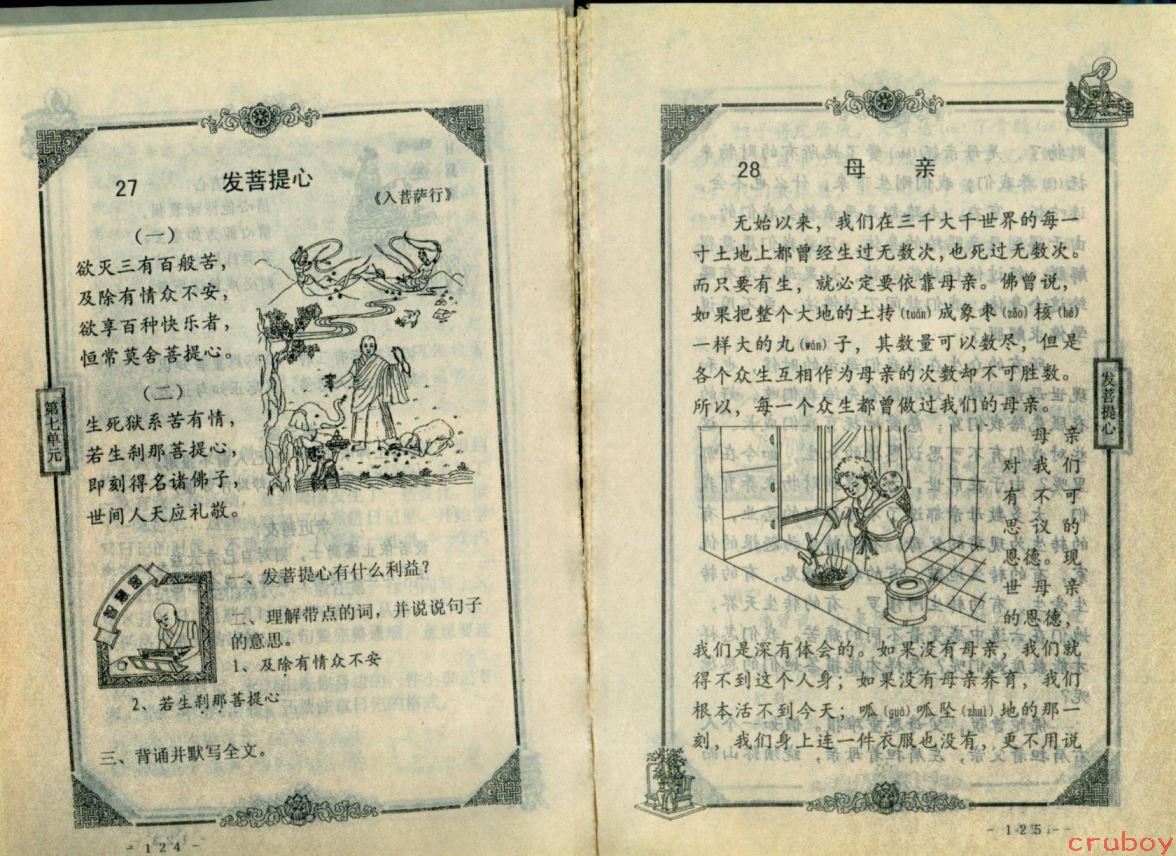 27 发菩提心
《入菩萨行》
(一)
欲灭三有百般苦，
及除有情众不安，
欲享百种快乐者，
恒常莫舍菩提心。
(二)
生死狱系苦有情，
若生刹那菩提心，
即刻得名诸佛子，
世间人天应礼敬。
第七单元
智慧园
一、发菩提心有什么利益？
二、理解带点的词，并说说句子
的意思。
1、及除有情众不安
2、若生刹那菩提心
三、背诵并默写全文。
- 124 -
28 母 亲
无始以来，我们在三千大千世界的每一
寸土地上都曾经生过无数次，也死过无数次。
而只要有生，就必定要依靠母亲。佛曾说，
如果把整个大地的土转(tuán)成象枣(zǎo)核(hé)
一样大的丸(wán)子，其数量可以数尽，但是
各个众生互相作为母亲的次数却不可胜数。
所以，每一个众生都曾做过我们的母亲。
母亲
对我们
有不可
思议的
恩德。现
世母亲
的恩德，
我们是深有体会的。如果没有母亲，我们就
得不到这个人身；如果没有母亲养育，我们
根本活不到今天；呱(guā)呱坠(zhuì)地的那一
刻，我们身上连一件衣服也没有，更不用说
发菩提心
- 125 -
cruboy